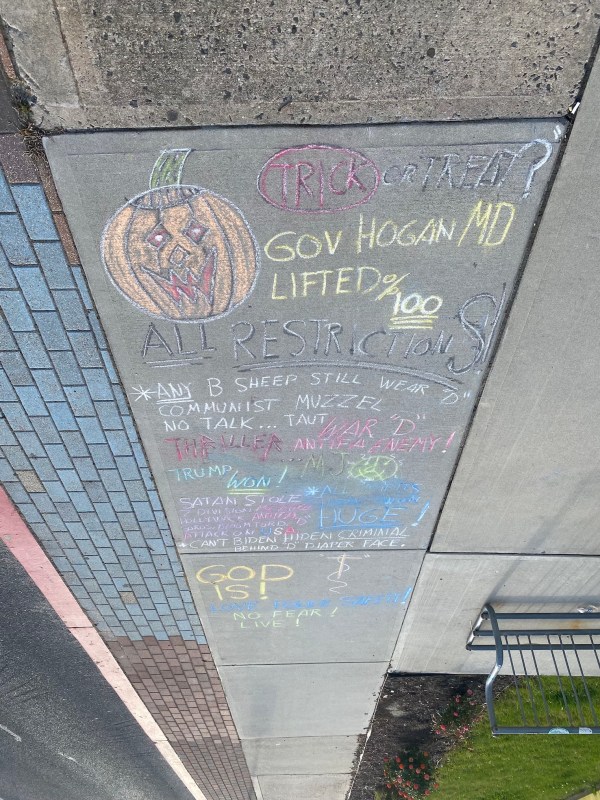 TRICK OR TREAT?
GOV HOGAN MD
LIFTED % 100
ALL RESTRICTIONS!
*ANY B SHEEP STILL WEAR "D"
COMMUNIST MUZZEL
NO TALK... TAUT WAR "D"
THRILLER ANTIFA ENEMY!
TRUMP WON! MJ
SATAN STOLE
HUGE!
ATTACK ON USA
*CAN'T BIDEN HIDEN CRIMINAL
BEHIND "D" DIAPER FACE.
GOD
IS!
LOVE
NO FEAR!
LIVE!